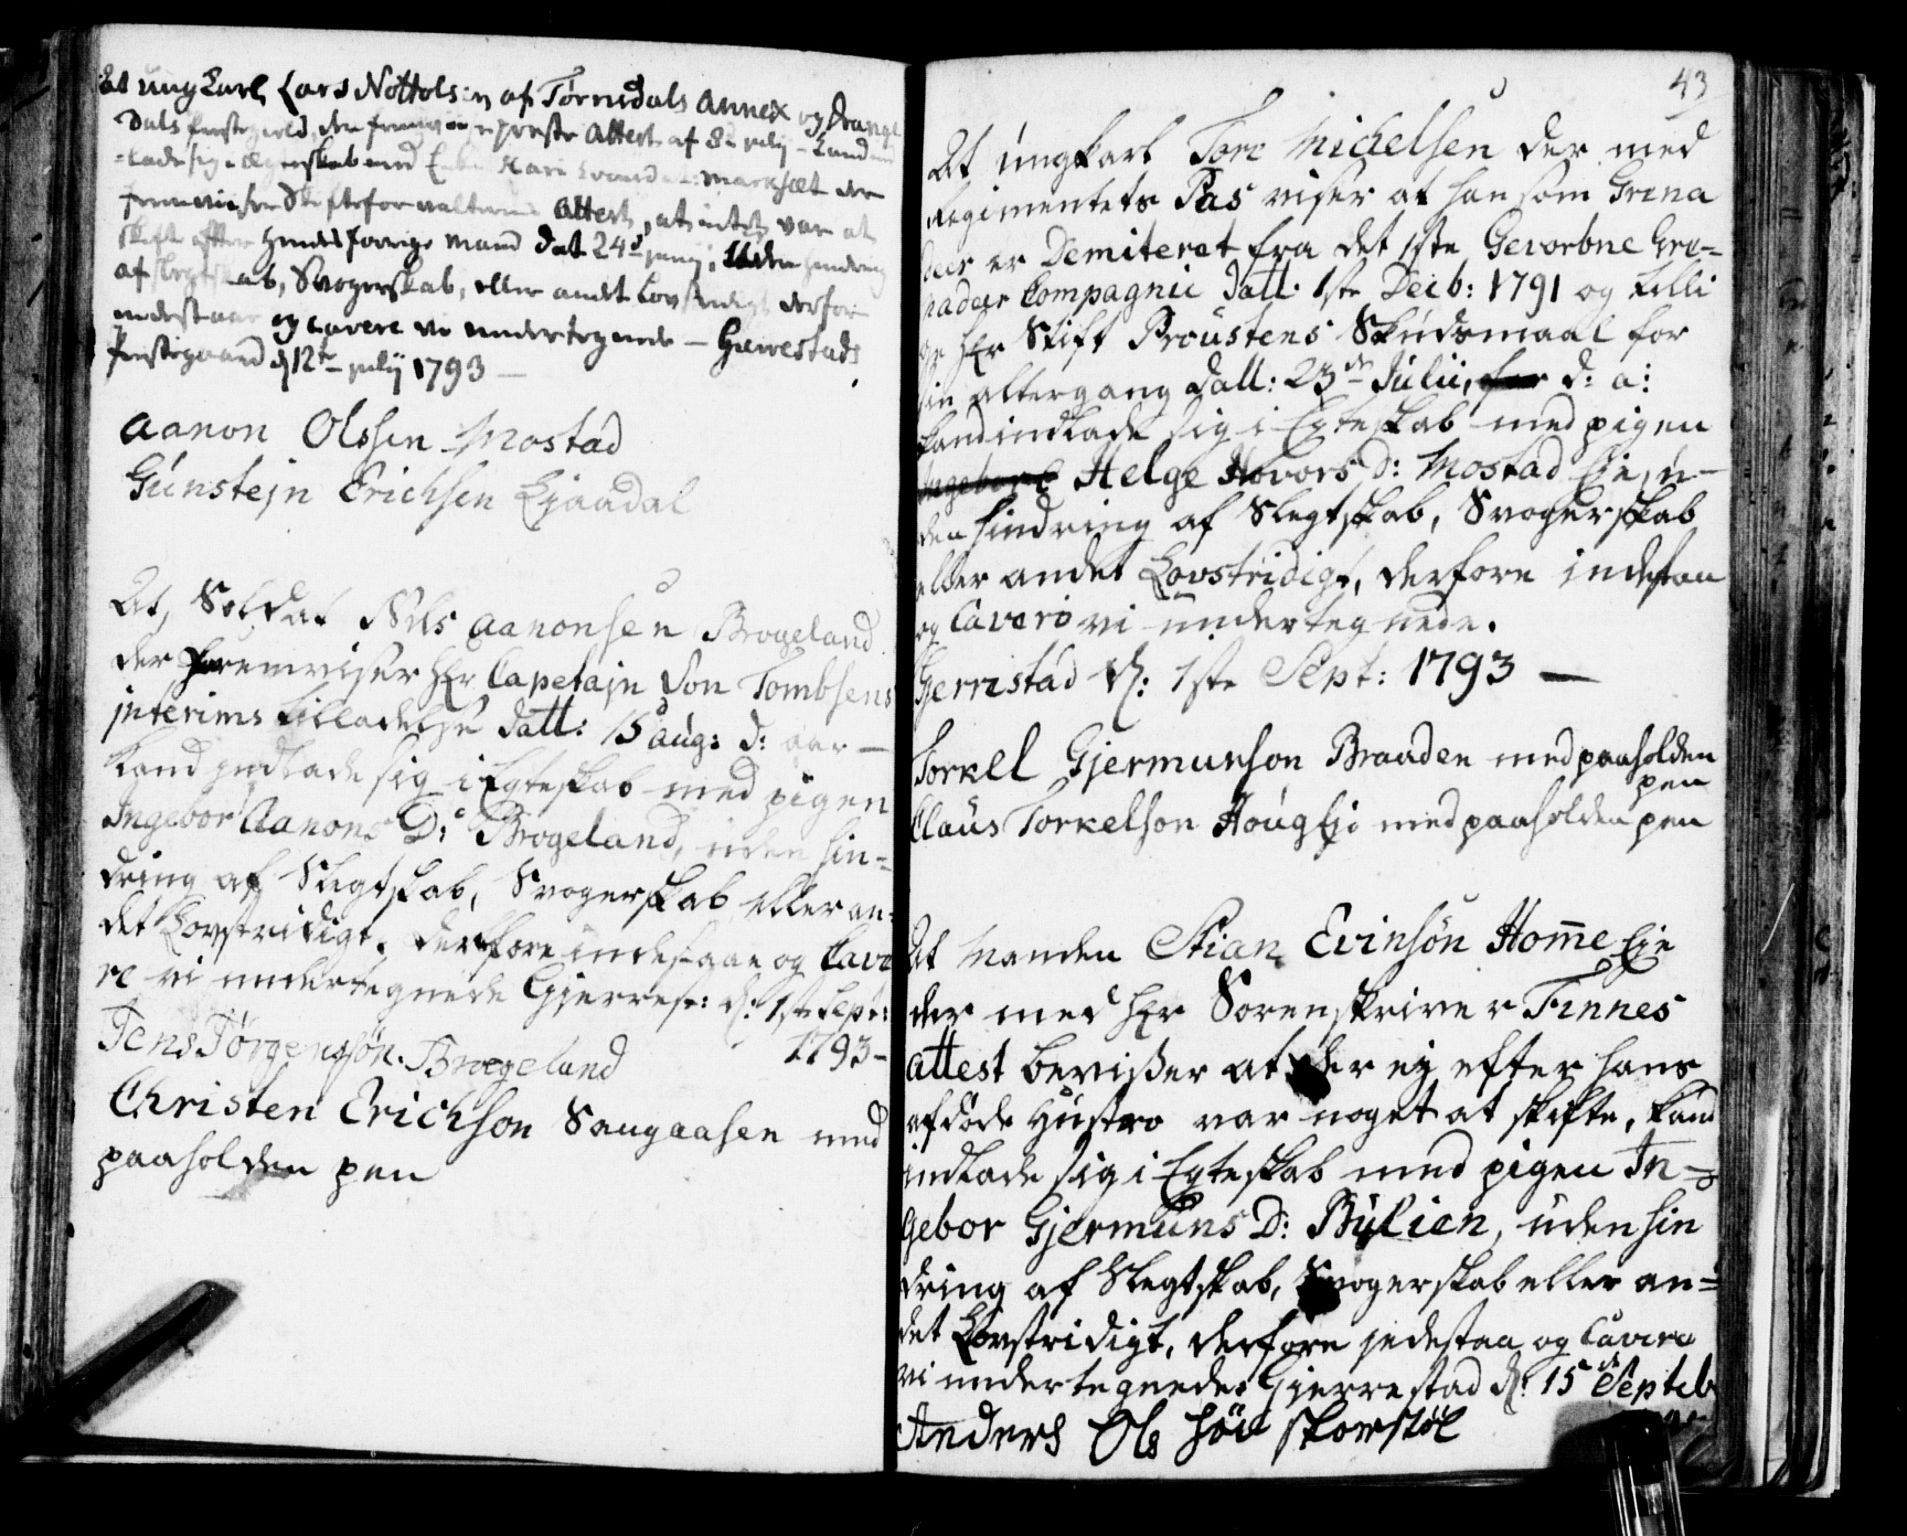 At ung Karl Lars Nottols:n af Törrisdals Annex og Drange
dals Præstegield, der fremviser Præste Attest af 8de julij – kand ind
-lade sig i Ægteskab med Enke Kari Marksæt der
fremviiser Skifteforvalterens Attest, at intet var at
skifte efter hendes forrige Mand dat 24de junij, Uden hindring
af slegtskab, Svogerskab, eller andet Lovstridigt derfor
indestaar og cavere vi undertegnede – Gierrestads
Præstegaard d 12te julij 1793 –
Aanon Olssen Mostad
Günstejn Erichsen Ljaadal
At, Soldat Nils Aanonsen Brogeland
der fremviser Hr Capetajn von Tombsens
interims tilladelse datt: 15 aug: d: aar –
kand indlade sig i Egteskab med pigen
Ingebor Aanons D: Brogeland, uden hin=
dring af Slegtskab, Svogerskab eller an=
det Lovstridigt. derfore indestaae og Cave
re vi undertegnede Gjerrest: d: 1ste Sept:
1793 –
Jens Jörgensön Brogeland
Christen Erichson Saugaasen med
paaholden pen
43
At üngkarl Tore Michelsen der med
Regimentets Pas viser at han som Grena
deer er Demiteret fra det 1ste Gevorbne Gre=
nadeer Compagnie datt: 1ste Decb: 1791 og tilli
ge Hr Stift Proustens Skudsmaal for
sin altergang datt: 23de Julii, for d: a:
kand indlade sig i Egteskab med pigen
Ingebor Helge Hovors D: Mostad Eje, u-
den hindring af Slegtskab, Svogerskab
eller andet Lovstridigt, derfore indestaa
og Cavere vi undertegnede.
Gjerrestad d: 1ste Sept: 1793 —
Torkel Gjermunson Braaden med paaholden
pen
Claus Torkelson Hougeje med paaholden pen
At Manden Stian Evinsön Hom̅e Eje
der med Hr Sorenskriver Finnes
attest beviser at der ej efter hans
afdöde Hustro var noget at skifte, kand
indlade sig i Egteskab med pigen In=
gebor Gjermuns D: Bulien, uden hin
dring af Slegtskab, Svogerskab eller an=
det Lovstridigt, derfore indestaa og Cavere
vi undertegnede Gjerrestad d: 15de Septeb
Anders Ols sön Skorstöl